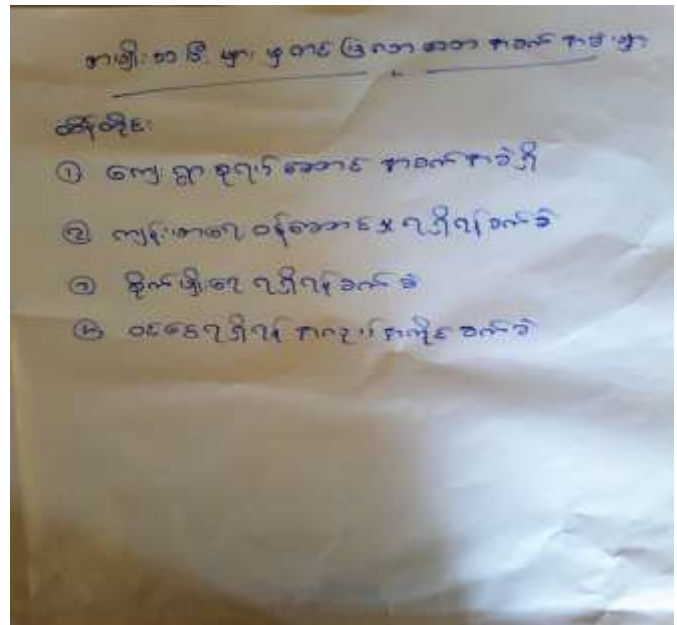 အမျိုးသမီးများမှတင်ပြလာသောအခက်အခဲများ
ထိန်တိုင်
① ကျေးရွာစုရပ်ဆောင်အခက်အခဲရှိ
② ကျန်းမာရေးဝန်ဆောင်မှုရရှိရန်ခက်ခဲ
③ စိုက်ပျိုးရေရရှိရန်ခက်ခဲ
④ ဝင်ငွေရရှိရန်အလုပ်အကိုင်ခက်ခဲ